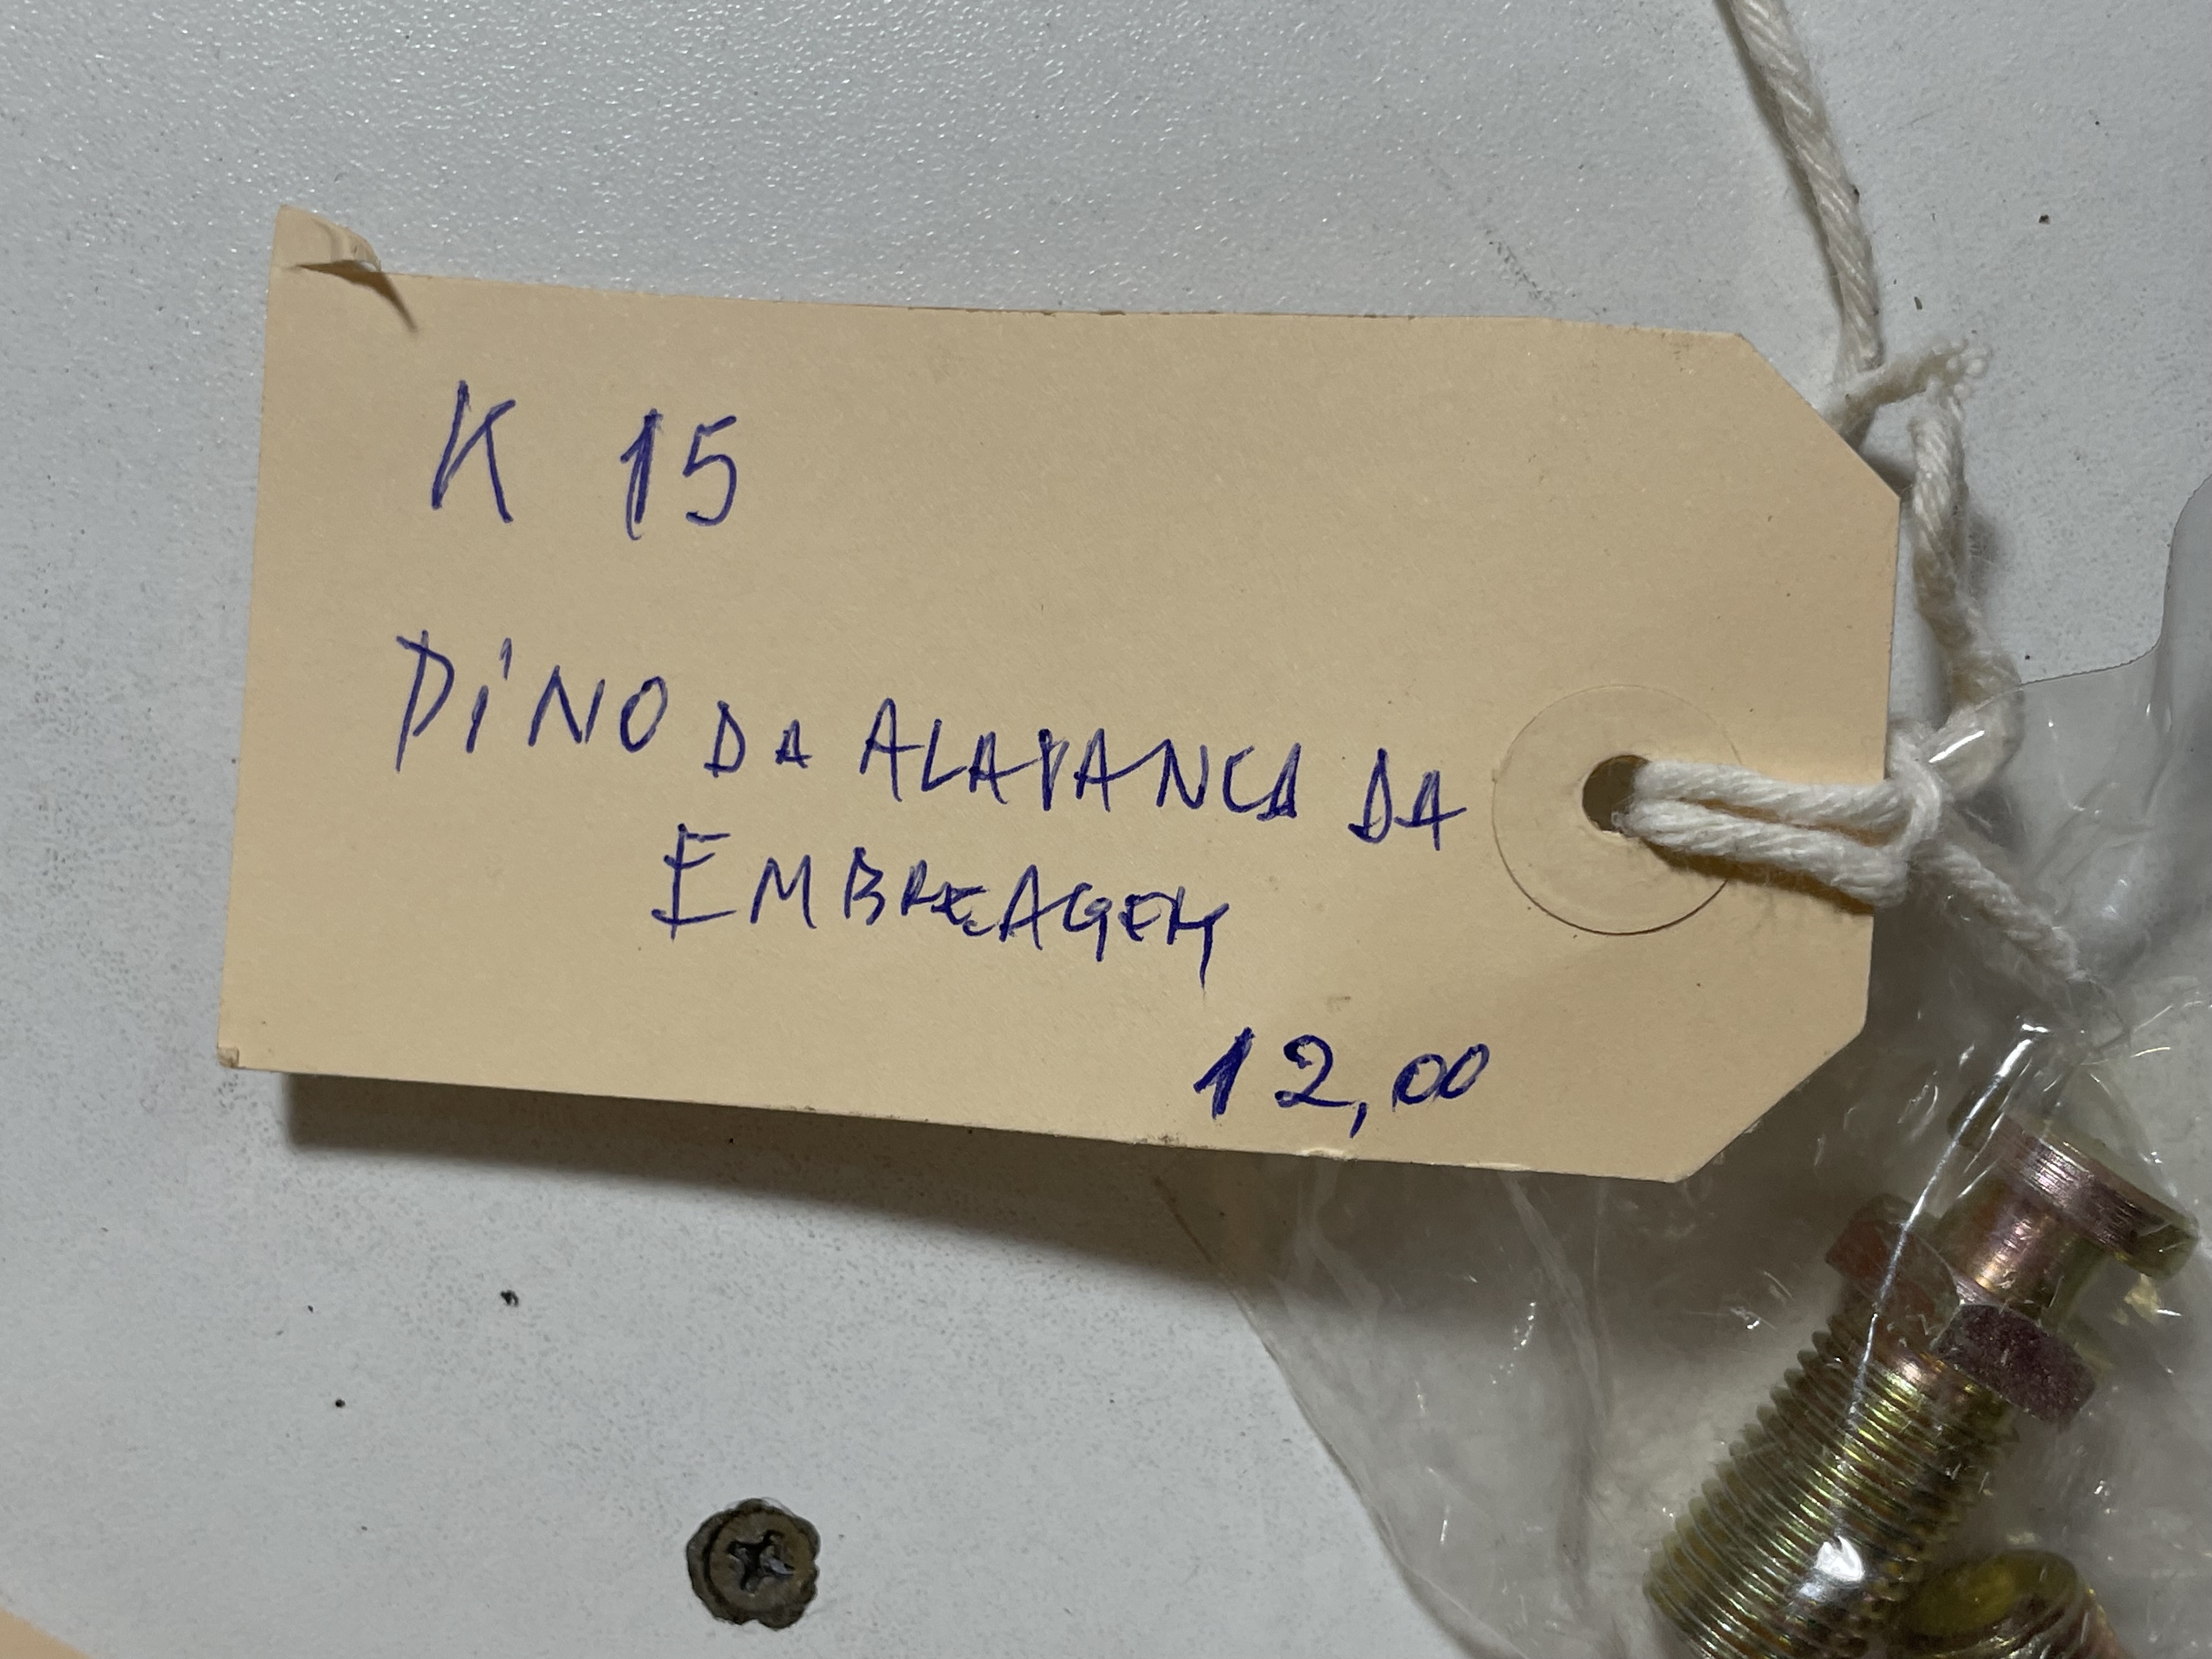 K 15
PiNO DA ALAVANCA DA
EMBREAGEM
12,00